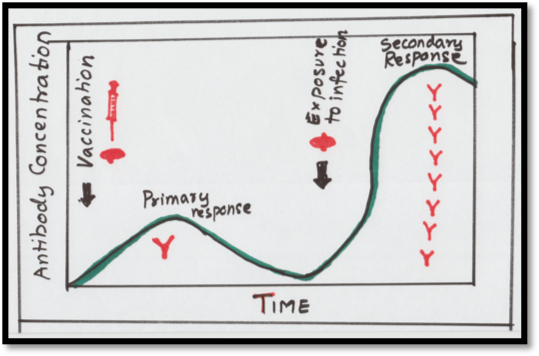 Antibody Concentration
Vaccination
Primary
response
Exposure
to infection
Secondary
Response
Y
Y
Y
Y
Y
Y
Y
Y
TIME